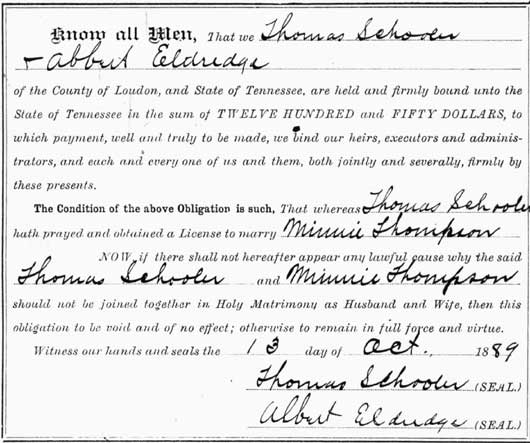 Know all Men, That we Thomas Schooler
+ Abbert Eldredge
of the County of Loudon, and State of Tennessee, are held and firmly bound unto the
State of Tennessee in the sum of TWELVE HUNDRED and FIFTY DOLLARS, to
which payment, well and truly to be made, we bind our heirs, executors and adminis-
trators, and each and every one of us and them, both jointly and severally, firmly by
these presents.
The Condition of the above Obligation is such, That whereas Thomas Schooler
hath prayed and obtained a License to marry Minnie Thompson
NOW if there shall not hereafter appear any lawful cause why the said
Thomas Schooler and Minnie Thompson
should not be joined together in Holy Matrimony as Husband and Wife, then this
obligation to be void and of no effect; otherwise to remain in full force and virtue.
Witness our hands and seals the 13 day of Oct., 1889
Thomas Schooler (SEAL.)
Albert Eldredge (SEAL.)